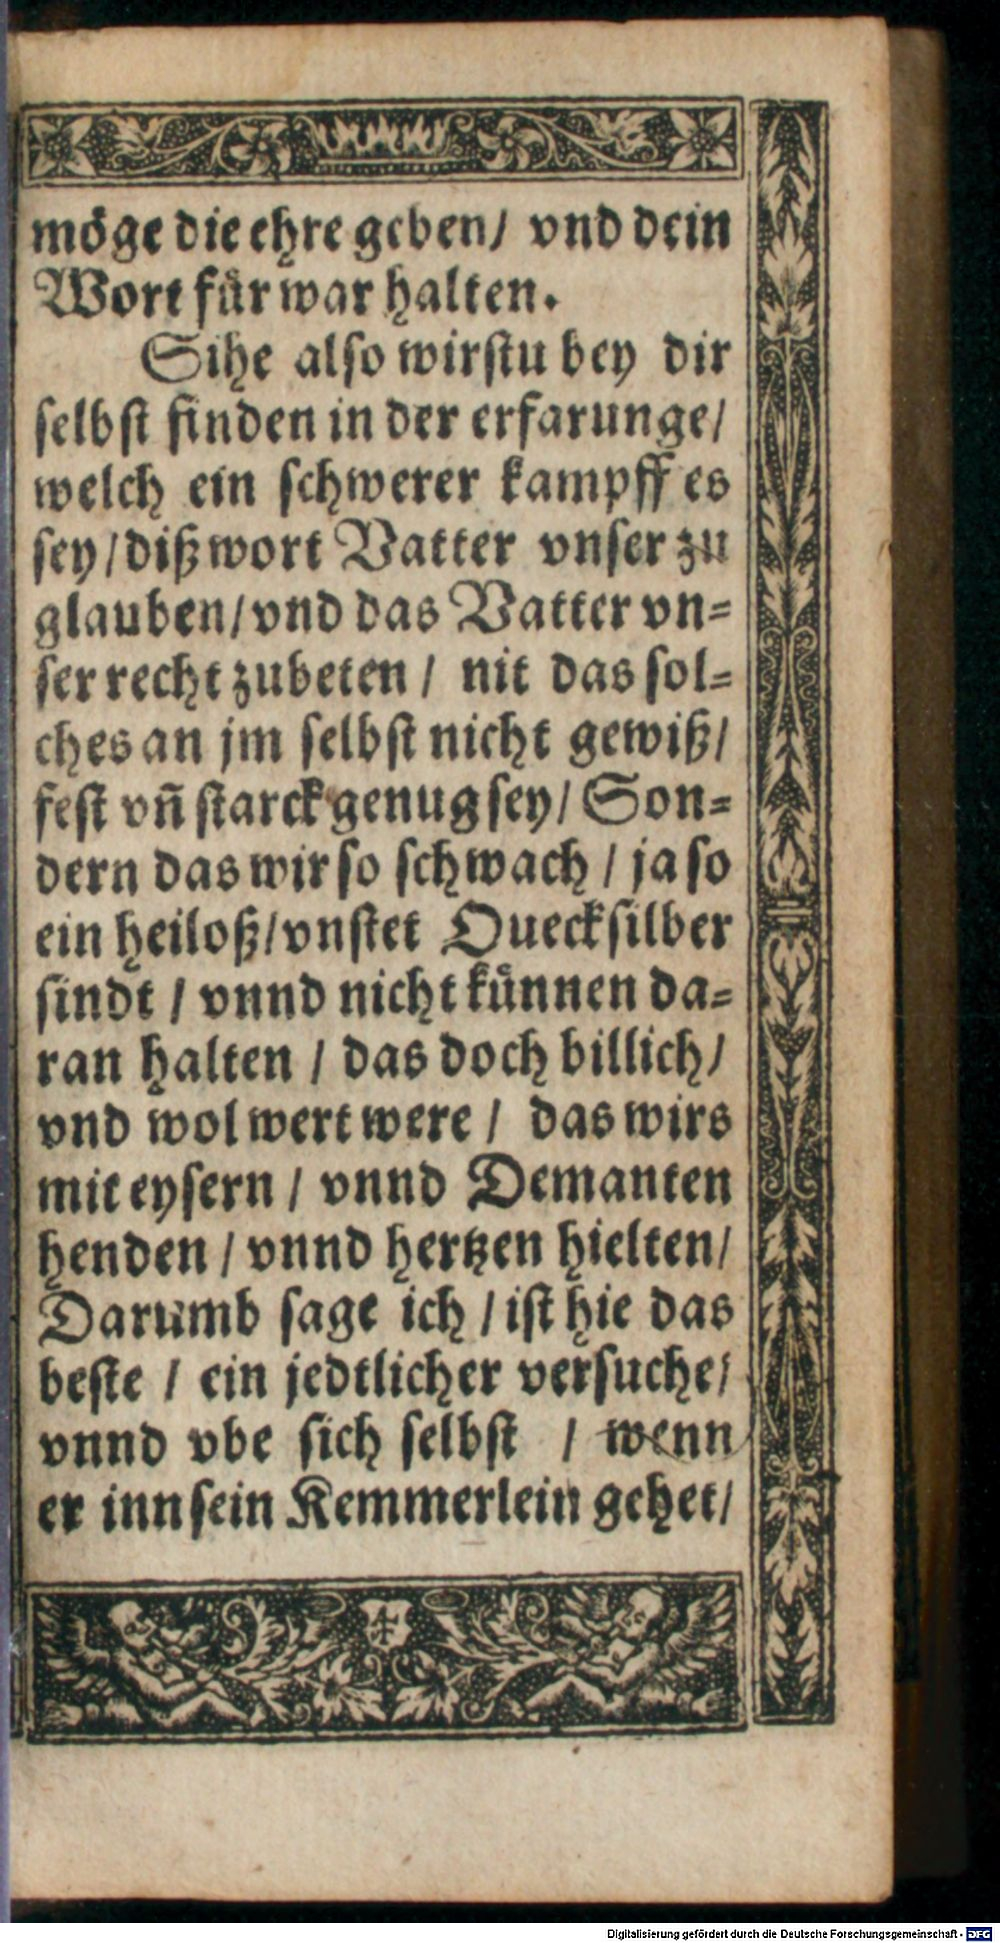 möge die ehre geben/ vnd dein
Wort für war halten.
Sihe also wirstu bey dir
selbst finden in der erfarunge/
welch ein schwerer kampff es
sey/diß wort Vatter vnser zu
glauben/vnd das Vatter vn=
ser recht zubeten / nit das sol=
ches an jm selbst nicht gewiß/
fest vn̄ starck genug sey/ Son=
dern das wir so schwach / ja so
ein heiloß/vnstet Quecksilber
sindt / vnnd nicht künnen da=
ran halten / das doch billich/
vnd wol wert were / das wirs
mit eysern / vnnd Demanten
henden / vnnd hertzen hielten/
Darumb sage ich / ist hie das
beste / ein jedtlicher versuche/
vnnd vbe sich selbst / wenn
er inn sein Kemmerlein gehet/
Digitalisierung gefördert durch die Deutsche Forschungsgemeinschaft - DFG